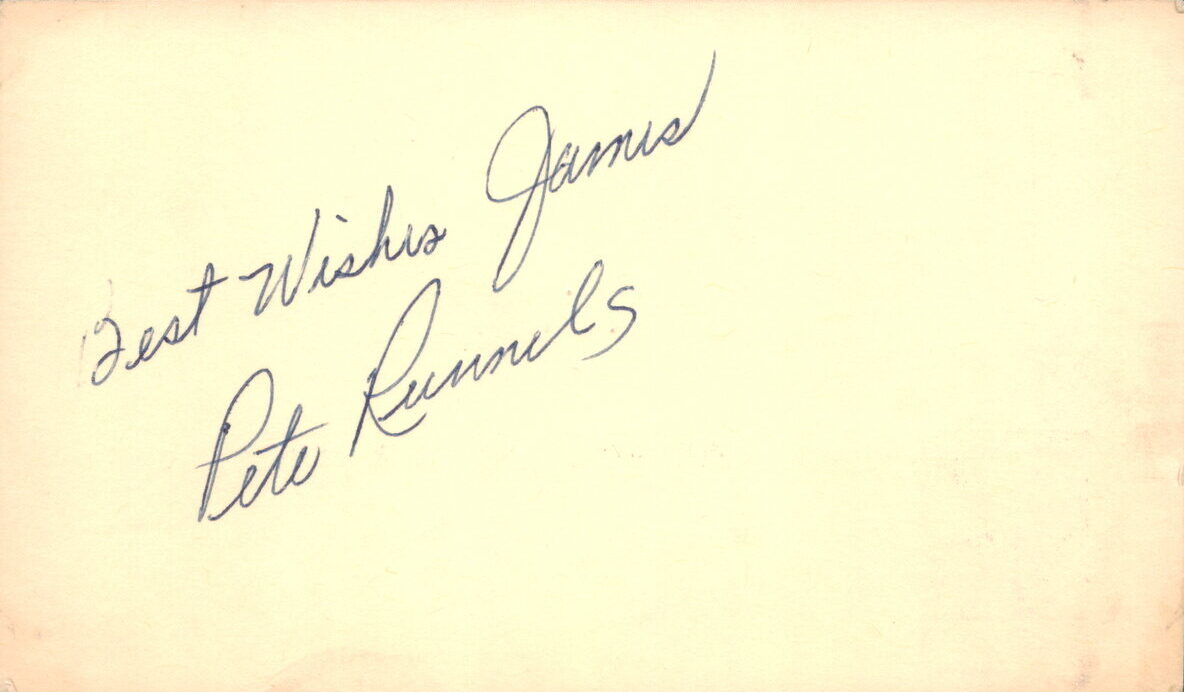 Best Wishes James
Pete Runnels